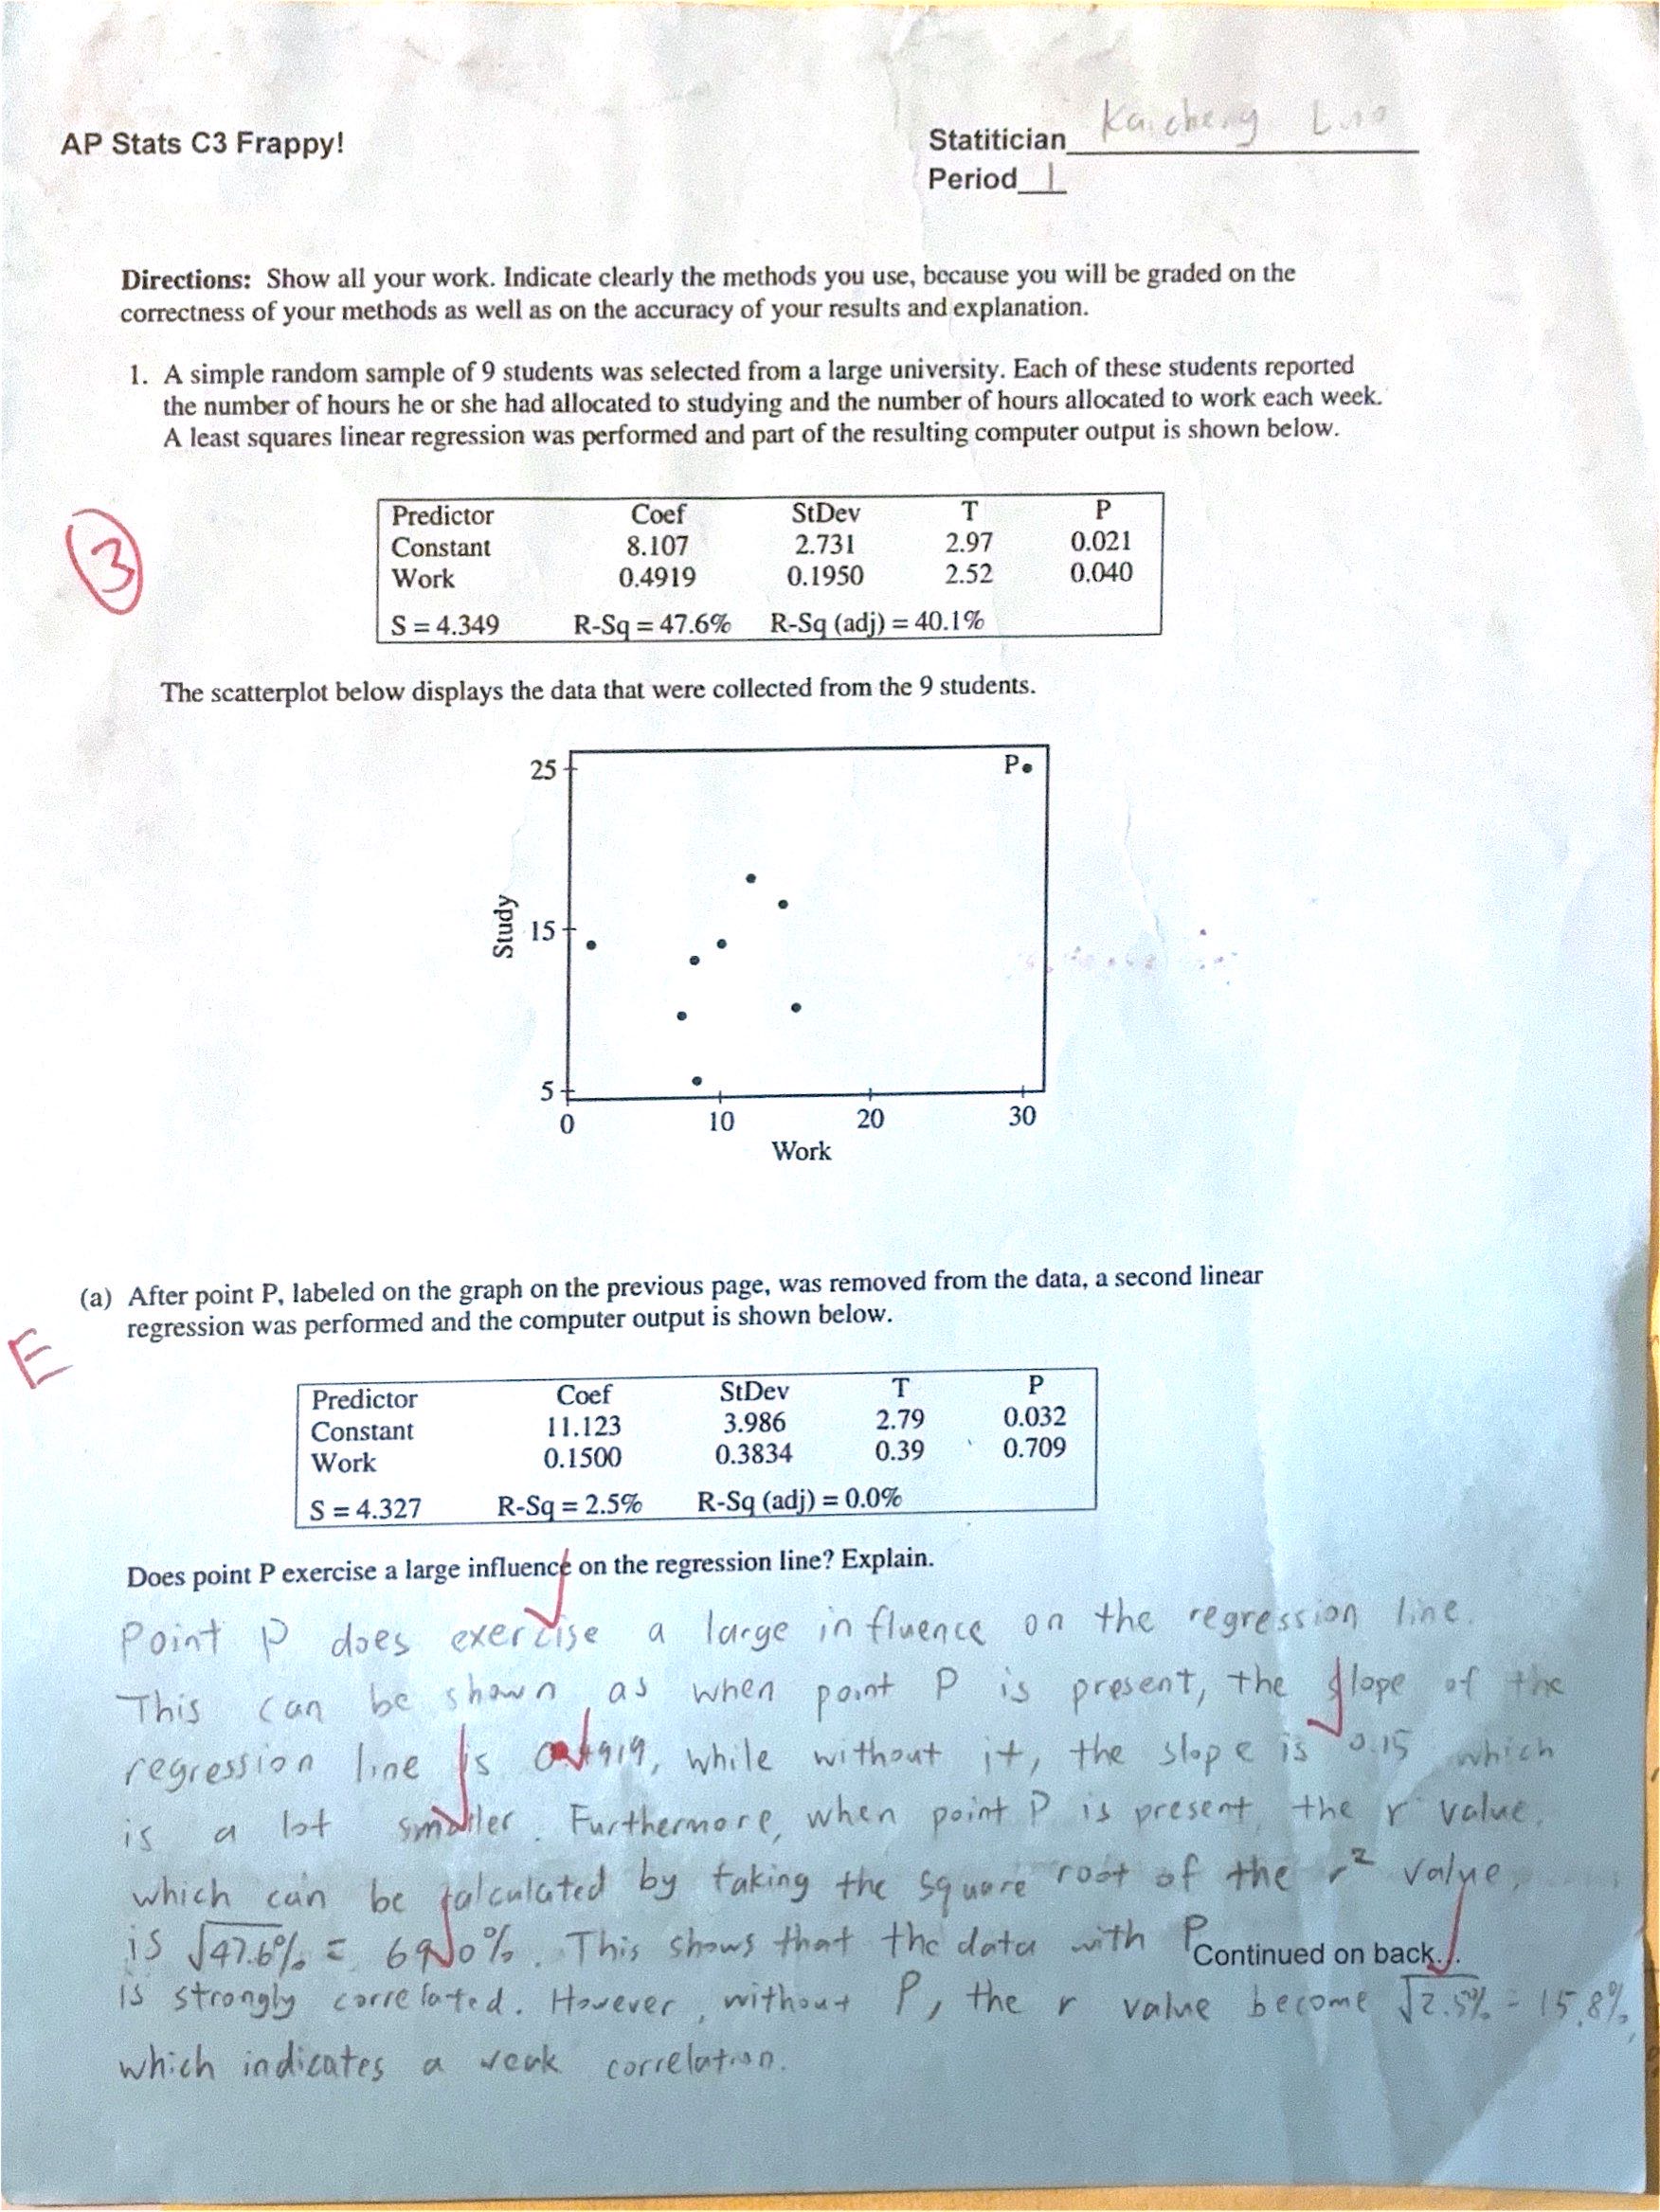 AP Stats C3 Frappy!
Statitician Kaicheng Luo
Period 1
Directions: Show all your work. Indicate clearly the methods you use, because you will be graded on the
correctness of your methods as well as on the accuracy of your results and explanation.
1. A simple random sample of 9 students was selected from a large university. Each of these students reported
the number of hours he or she had allocated to studying and the number of hours allocated to work each week.
A least squares linear regression was performed and part of the resulting computer output is shown below.
3
Predictor Coef StDev T P
Constant 8.107 2.731 2.97 0.021
Work 0.4919 0.1950 2.52 0.040
S = 4.349 R-Sq = 47.6% R-Sq (adj) = 40.1%
The scatterplot below displays the data that were collected from the 9 students.
25
P
Study
15
5
0 10 20 30
Work
(a) After point P, labeled on the graph on the previous page, was removed from the data, a second linear
regression was performed and the computer output is shown below.
E
Predictor Coef StDev T P
Constant 11.123 3.986 2.79 0.032
Work 0.1500 0.3834 0.39 0.709
S = 4.327 R-Sq = 2.5% R-Sq (adj) = 0.0%
Does point P exercise a large influence on the regression line? Explain.
Point P does exercise a large influence on the regression line.
This can be shown as when point P is present, the slope of the
regression line is 0.4919, while without it, the slope is 0.15 which
is a lot smaller. Furthermore, when point P is present, the r value,
which can be calculated by taking the square root of the r² value,
is √47.6% = 69.0%. This shows that the data with P
Continued on back...
is strongly correlated. However, without P, the r value become √2.5% = 15.8%,
which indicates a weak correlation.